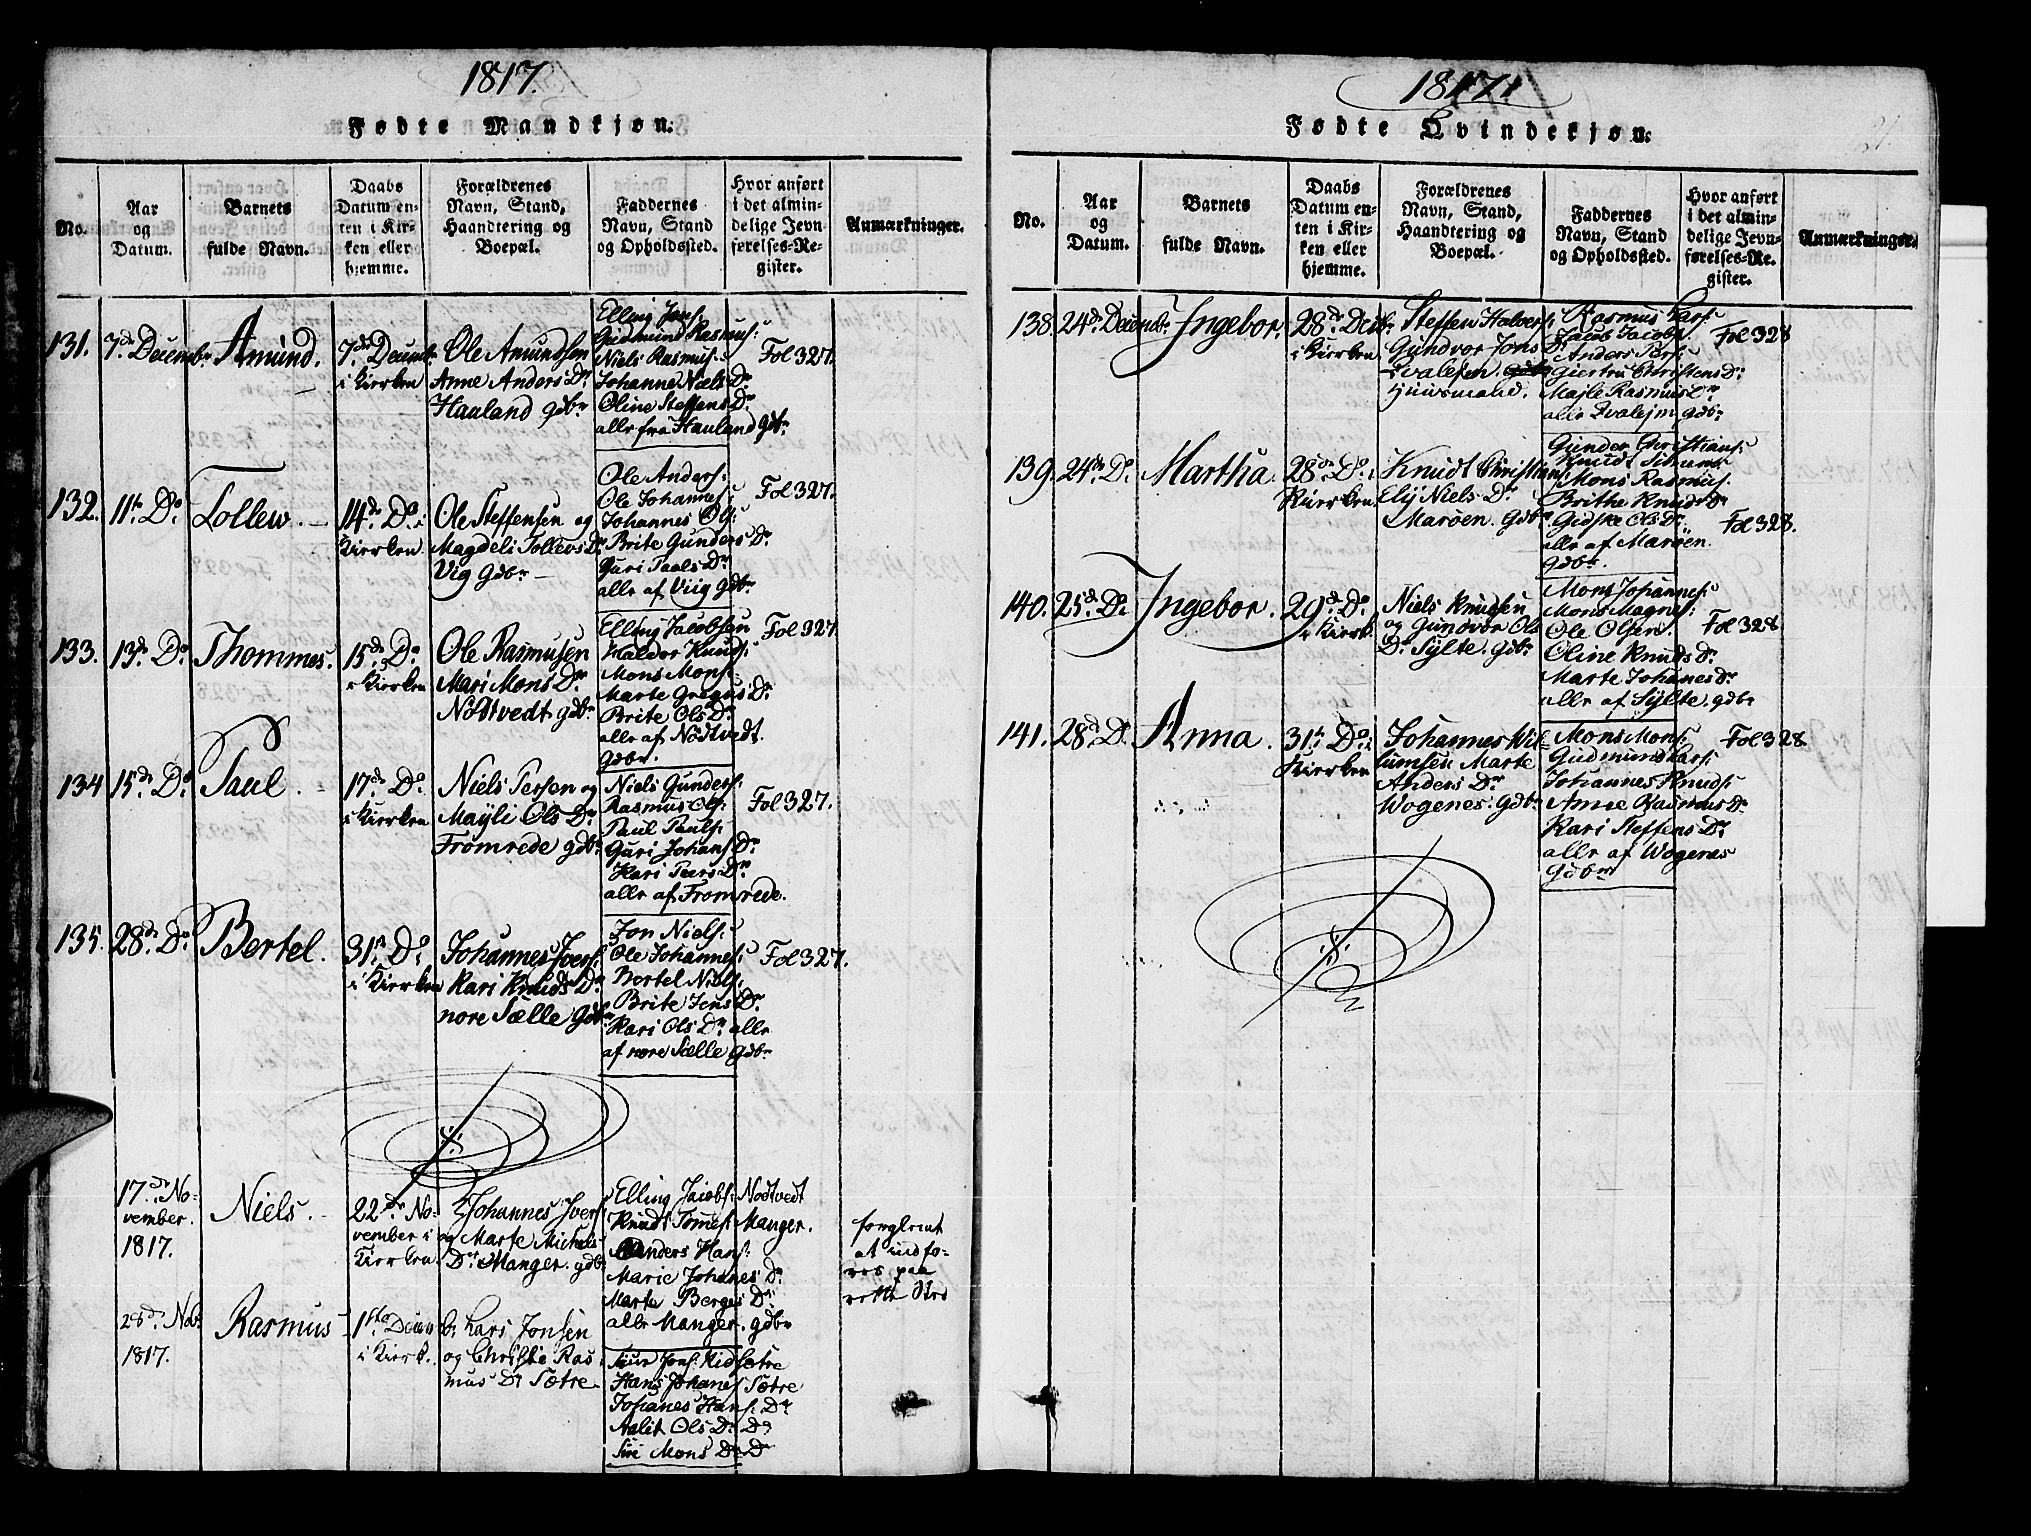 1817.
Fødte Mandkjøn.
No.
Aar og Datum.
Barnets fulde Navn.
Daabs Datum enten i Kirken eller hjemme.
Forældrenes Navn, Stand, Haandtering og Boepæl.
Faddernes Navn, Stand og Opholdssted.
Hvor anført i det almindelige Jevnførelses-Register.
Anmærkninger.
131. 7de Decembr Amund.
7de Decembr
i Kirken
Ole Amundsen
Anne Anders Dr
Hauland gdbr
Elling Jons:
Gudmund Rasmus:
Niels Rasmus:
Johanne Niels Dr
Oline Steffens Dr
alle fra Hauland gdbr
Fol 327.
132. 11te Do Tollew.
14de Do i
Kirken
Ole Steffensen og
Magdeli Tollevs Dr
Vig Gdbr
Ole Anders:
Ole Johannes:
Johannes Ols:
Brite Gunders Dr
Guri Paals Dr
alle af Viig gdbr
Fol 327.
133. 13de Do Thommes.
15de Do
i Kirken
Ole Rasmusen
Mari Mons Dr
Nödtvedt gdbr
Elling Jacobsen
Haldor Knuds:
Mons Mons:
Marte Gregus Dr
Brite Ols Dr
alle af Nödtvedt.
gdbr.
Fol 327.
134 15de Do Paul.
17de Do
i Kirken
Niels Person og
Mayli Ols Dr
Fromrede gdbr
Niels Gunders:
Rasmus Ols:
Paul Pauls:
Guri Johans Dr
Kari Peers Dr
alle af Fromrede.
Fol 327.
135. 28de Do Bertel.
31te Do
i Kirken
Johannes Ivers:
Kari Knuds Dr
nore Sælle Gdbr
Jon Niels:
Ole Johannes:
Bertel Niels:
Brite Jens Dr
Kari Ols Dr alle
af nore Sælle gdbr
Fol 327.
17de No-
vember.
1817.
Niels.
22de No-
vember i
Kirken
Johannes Ivers:
og Marte Michels
Dr Manger. gdbr
Elling Jacobs: Nodtvedt
Knudt Tomes: Manger.
Anders Hans:
Marie Johanes Dr
Marte Berges Dr
alle Manger. gdbr
forglemt
at indfø-
res paa
rette Sted
28de Nobr
1817.
Rasmus
1ste Decemb:
i Kirk.
Lars Jonsen
og Christie Ras
mus Dr Sætre
Siur Jons: Midsætre
Hans Johanes Sætre
Johanes Hans: Do
Aalit Ols Dr Do
Siri Mons Dr Do
1817.
Fødte Qvindekjøn.
No.
Aar og Datum.
Barnets fulde Navn.
Daabs Datum enten i Kirken eller hjemme.
Forældrenes Navn, Stand, Haandtering og Boepæl.
Faddernes Navn, Stand og Opholdssted.
Hvor anført i det almindelige Jevnførelses-Register.
Anmærkninger.
138. 24de Decembr Ingebor.
28de Decbr
i Kirken
Steffen Halvers:
Gundvor Jons Dr
Husmand.
Rasmus Lars:
Jacob Jacobs:
Anders Pers:
Giertru Christens Dr
Majle Rasmus Dr
Fol 328
139. 24de Do Martha.
28de Do i
Kirken.
Knudt Christians:
Elij Niels Dr
Maröen. Gdbr
Gunder Christians:
Mons Rasmus:
Brithe Knuds Dr
Gidske Ols Dr.
alle af Maröen.
gdbr.
Fol 328.
140. 25de Do Ingebor.
29de Do
i Kirk.
Niels Knudsen
og Gundvor Ols
Dr Sylte. gdbr
Mons Johannes:
Mons Magnes:
Ole Olsen.
Oline Knuds Dr
Marte Johanes Dr
alle af Sylte. gdbr
Fol 328
141. 28de Do Anna.
31te Do i
Kirken
Johannes Wil-
lumsen Marte
Anders Dr
Wogenes. gdbr
Mons Mons:
Gudmund Lars:
Johannes Knuds:
Anne Rasmus Dr
Kari Steffens Dr
alle af Wogenes
Gdbr
Fol 328.